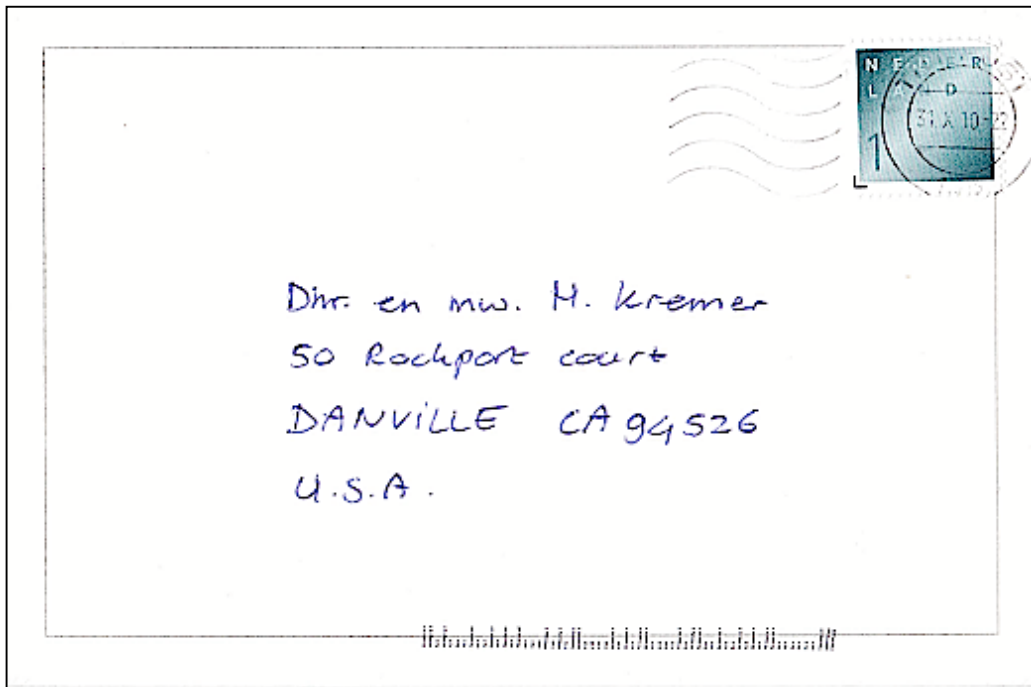 NEDER
LAND
31 X 10-22
1
Dhr. en mw. M. Kremer
50 Rockport court
DANVILLE CA 94526
U.S.A.